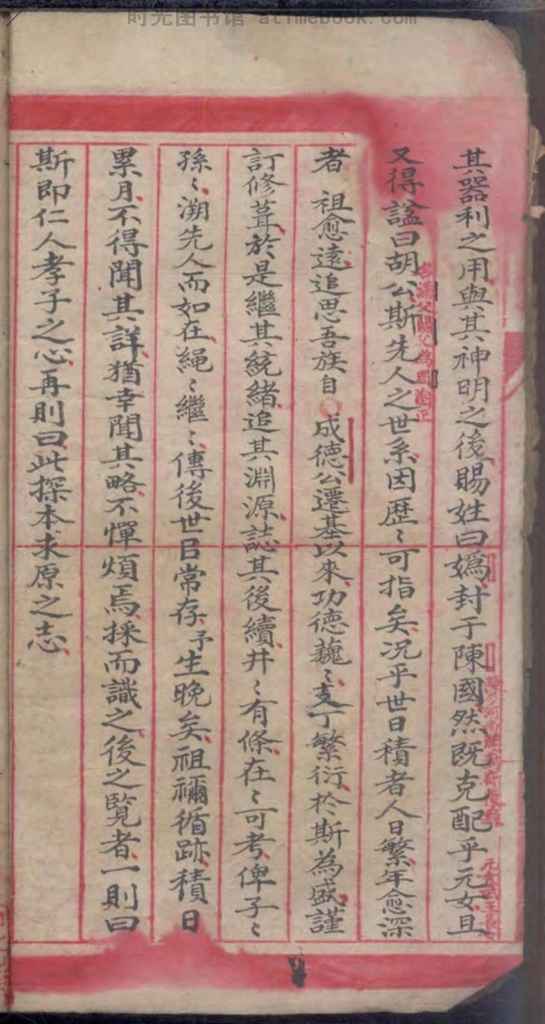 时光图书馆 atimebook.com
其器利之用與其神明之後賜姓曰媯封于陳國然既克配乎元女且
又得謚曰胡公斯先人之世系因歷〻可指矣況乎世日積者人日繁年愈深
者 祖愈遠追思吾族自 成德公遷基以來功德巍〻支丁繁衍於斯為盛謹
訂修葺於是繼其統緒追其淵源誌其後續井〻有條在〻可考俾子〻
孫〻溯先人而如在繩〻繼〻傳後世㠯常存予生晚矣祖禰循跡積日
累月不得聞其詳猶幸聞其略不憚煩焉採而識之後之覽者一則曰
斯即仁人孝子之心再則曰此探本求原之志